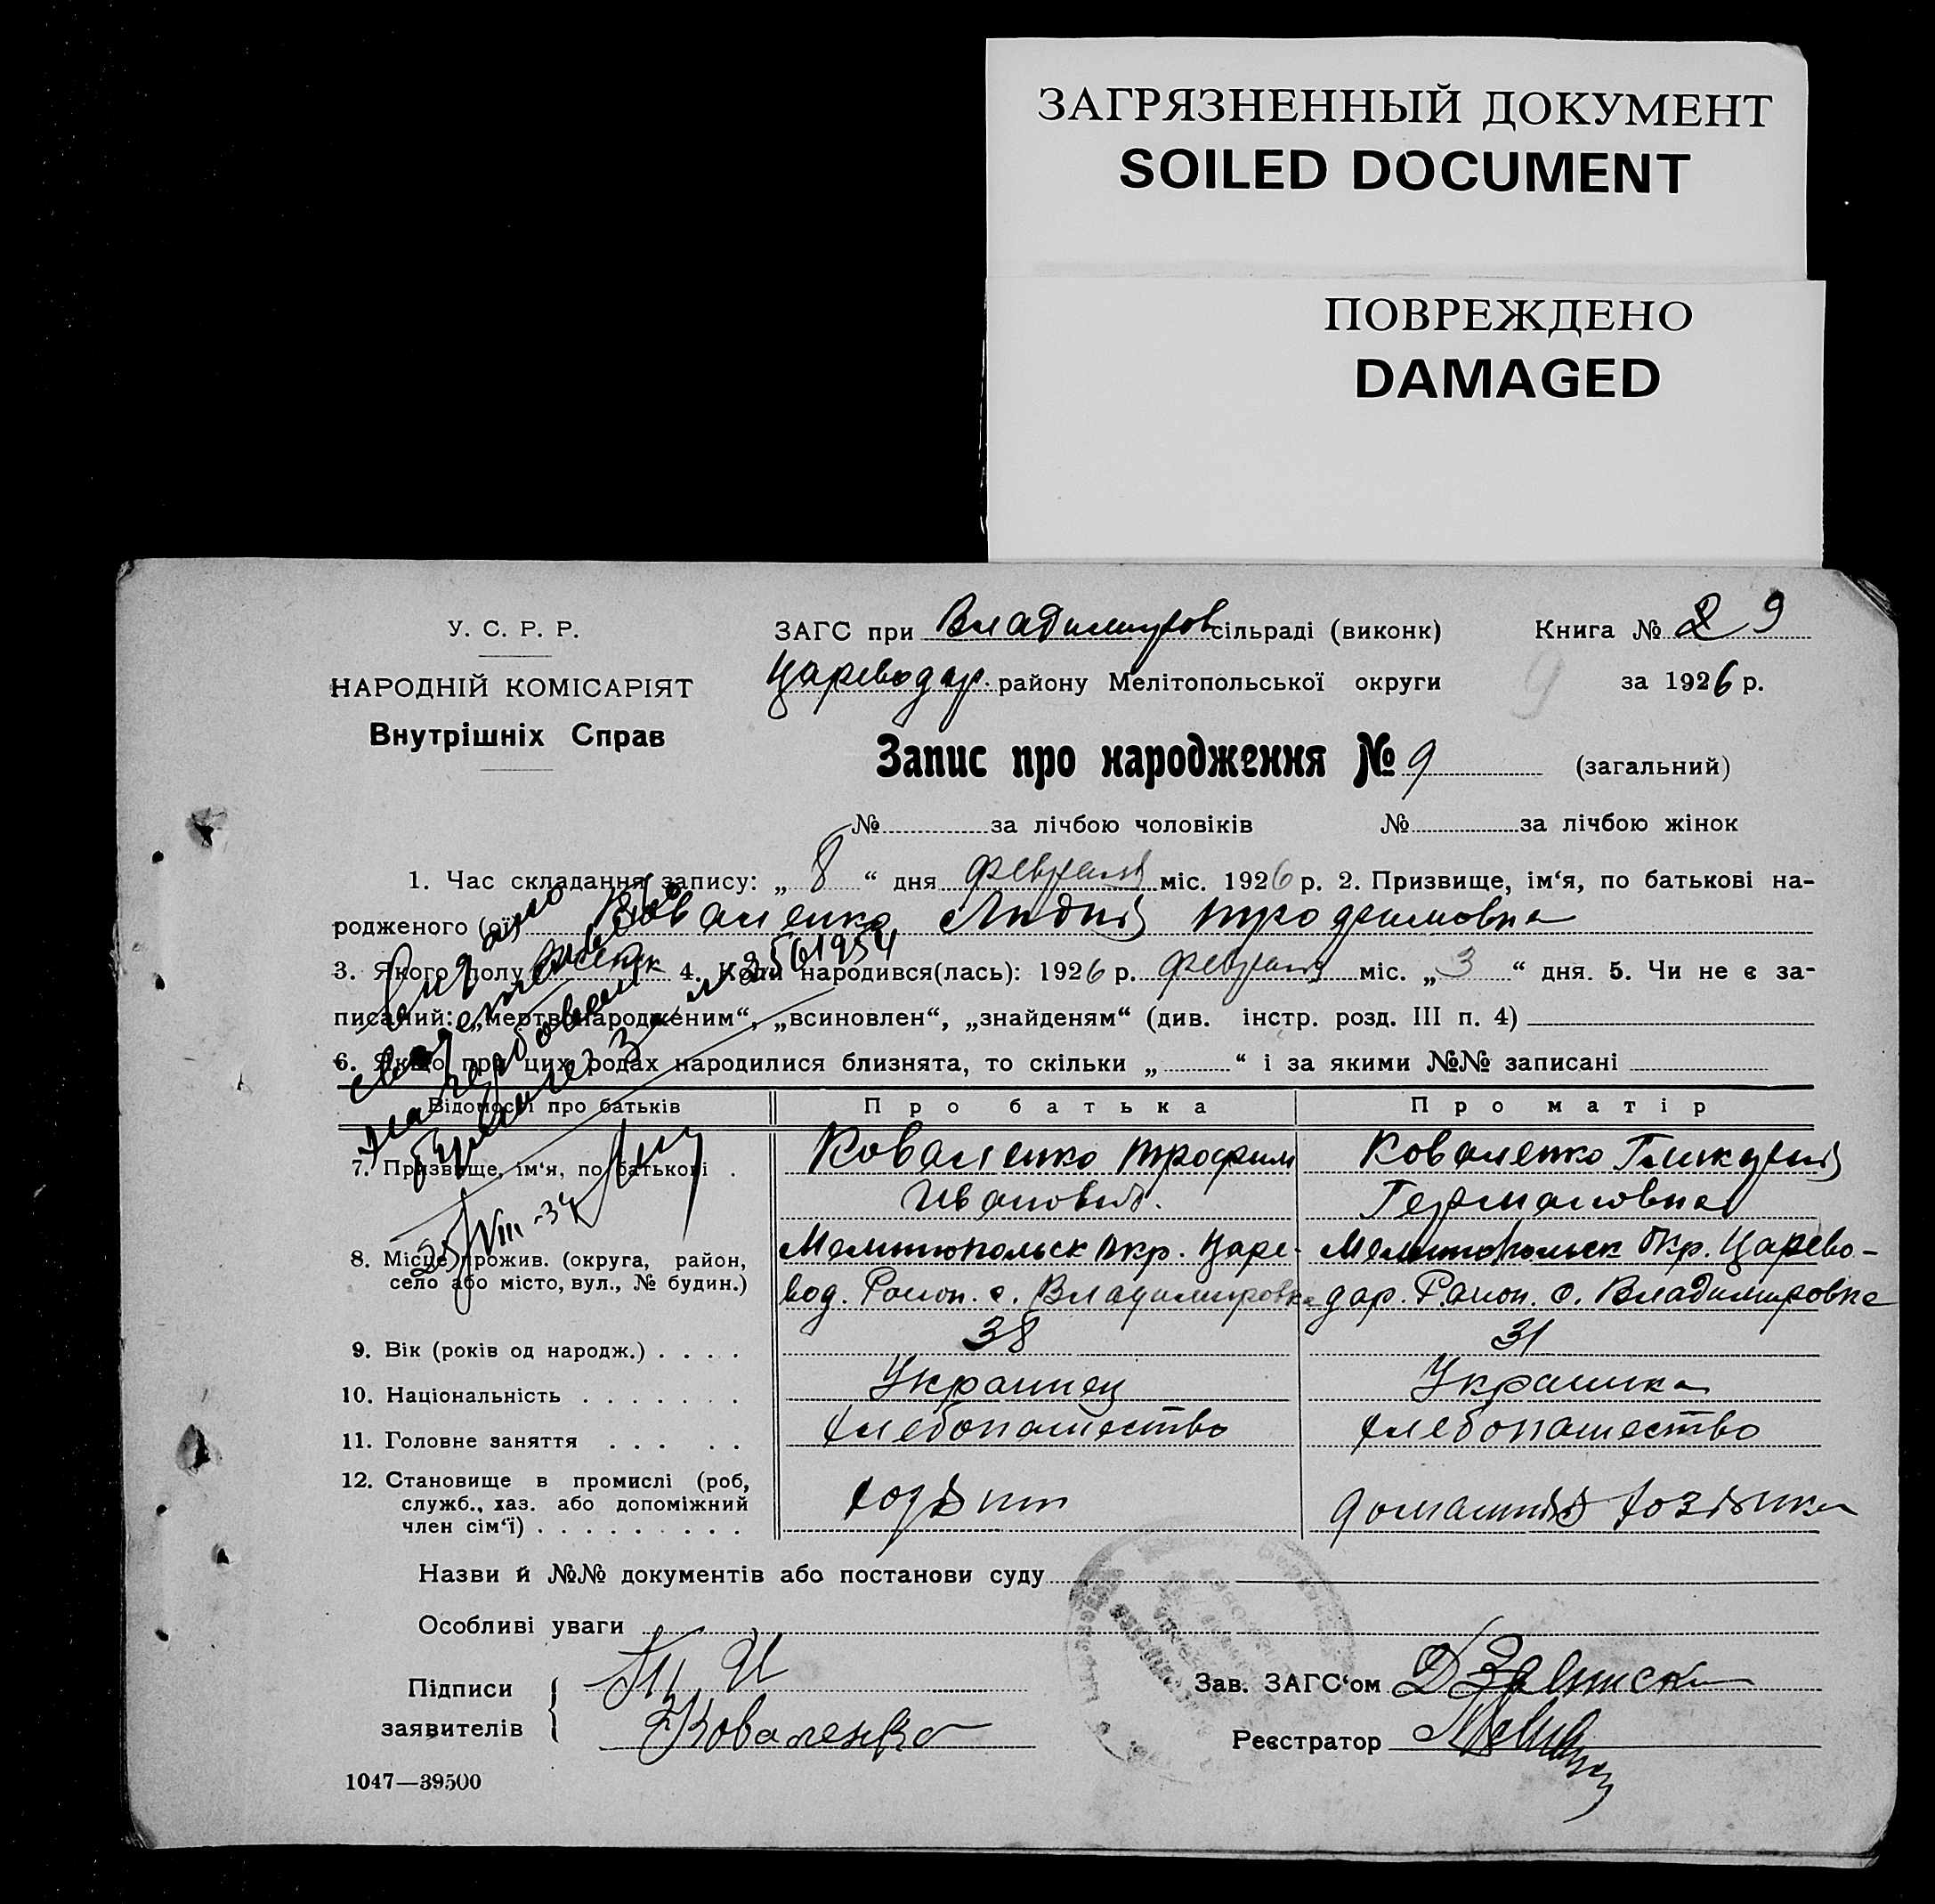 ЗАГРЯЗНЕННЫЙ ДОКУМЕНТ
SOILED DOCUMENT
ПОВРЕЖДЕНО
DAMAGED
У. С. Р. Р.
НАРОДНІЙ КОМІСАРІЯТ
Внутрішніх Справ
ЗАГС при Владимиров сільраді (виконк)
Книга № 2 9
Цареводар. району Мелітопольської округи
9
за 1926 р.
Запис про народження № 9 (загальний)
№ за лічбою чоловіків № за лічбою жінок
1. Час складання запису: „ 8 “ дня февраля міс. 1926 р. 2. Призвище, ім‘я, по батькові на-
родженого (ої) Коваленко Лидия трофимовна
3. Якого полу женск 4. Коли народився(лась): 1926 р. февраля міс. „ 3 “ дня. 5. Чи не є за-
писаний: „мертвонародженим“, „всиновлен“, „знайденям“ (див. інстр. розд. III п. 4)
6. Якщо при цих родах народилися близнята, то скільки „ “ і за якими №№ записані
Відомості про батьків
Про батька
Про матір
7. Призвище, ім‘я, по батькові .
Коваленко трофим
Ивонович.
Коваленко
Германовна
8. Місце прожив. (округа, район,
село або місто, вул., № будин.)
Мелитопольск окр. Царе-
вод. Район. с. Владимировка
Мелитопольск Окр. Царево-
дар. Район. с. Владимировка
9. Вік (років од народж.) . . . .
38
31
10. Національність . . . . . . .
Украинец
Украинка
11. Головне заняття . . . . .
хлебопашество
хлебопашество
12. Становище в промислі (роб,
служб., хаз. або допоміжний
член сім‘ї) . . . . . . . . .
домашняя хозяйка
Назви й №№ документів або постанови суду
Особливі уваги
Підписи
заявителів
Коваленко
Зав. ЗАГС‘ом
Реєстратор
1047—39500